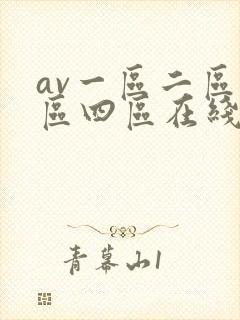 av一區二區
區四區在綫
青幕山1